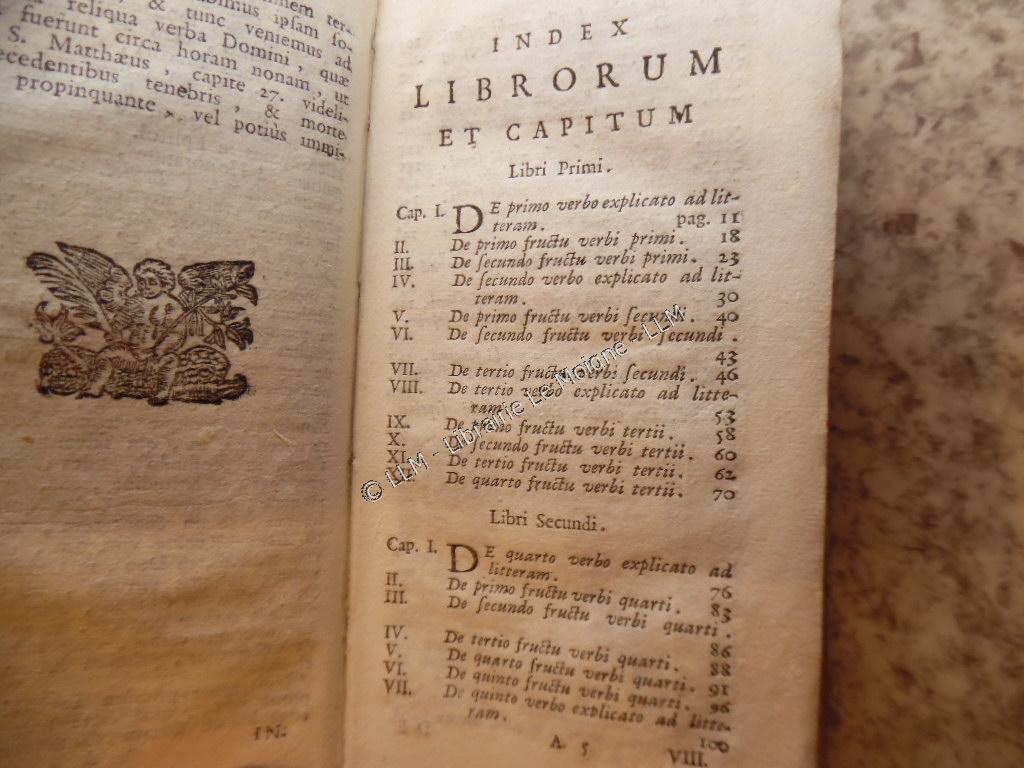 nem ter-
ipsam so-
, & tunc veniemus ad
reliqua verba Domini, quæ
fuerunt circa horam nonam, ut
S. Matthæus, capite 27. videli-
cedentibus tenebris, & morte
propinquante, vel potiùs immi-
IN-
INDEX
LIBRORUM
ET CAPITUM
Libri Primi.
Cap. I. DE primo verbo explicato ad lit-
teram. pag. 11
II. De primo fructu verbi primi. 18
III. De ſecundo fructu verbi primi. 23
IV. De ſecundo verbo explicato ad lit-
teram. 30
V. De primo fructu verbi ſecundi. 40
VI. De ſecundo fructu verbi ſecundi.
43
VII. De tertio fructu verbi ſecundi. 46
VIII. De tertio verbo explicato ad litte-
ram. 53
IX. De primo fructu verbi tertii. 58
X. De ſecundo fructu verbi tertii. 60
XI. De tertio fructu verbi tertii. 62
De quarto fructu verbi tertii. 70
Libri Secundi.
Cap. I. DE quarto verbo explicato ad
litteram. 76
II. De primo fructu verbi quarti. 83
III. De ſecundo fructu verbi quarti.
86
IV. De tertio fructu verbi quarti. 88
V. De quarto fructu verbi quarti. 91
VI. De quinto fructu verbi quarti. 96
VII. De quinto verbo explicato ad litte-
ram. 100
A 5 VIII.
© LLM - Librairie Le Moione - LLM